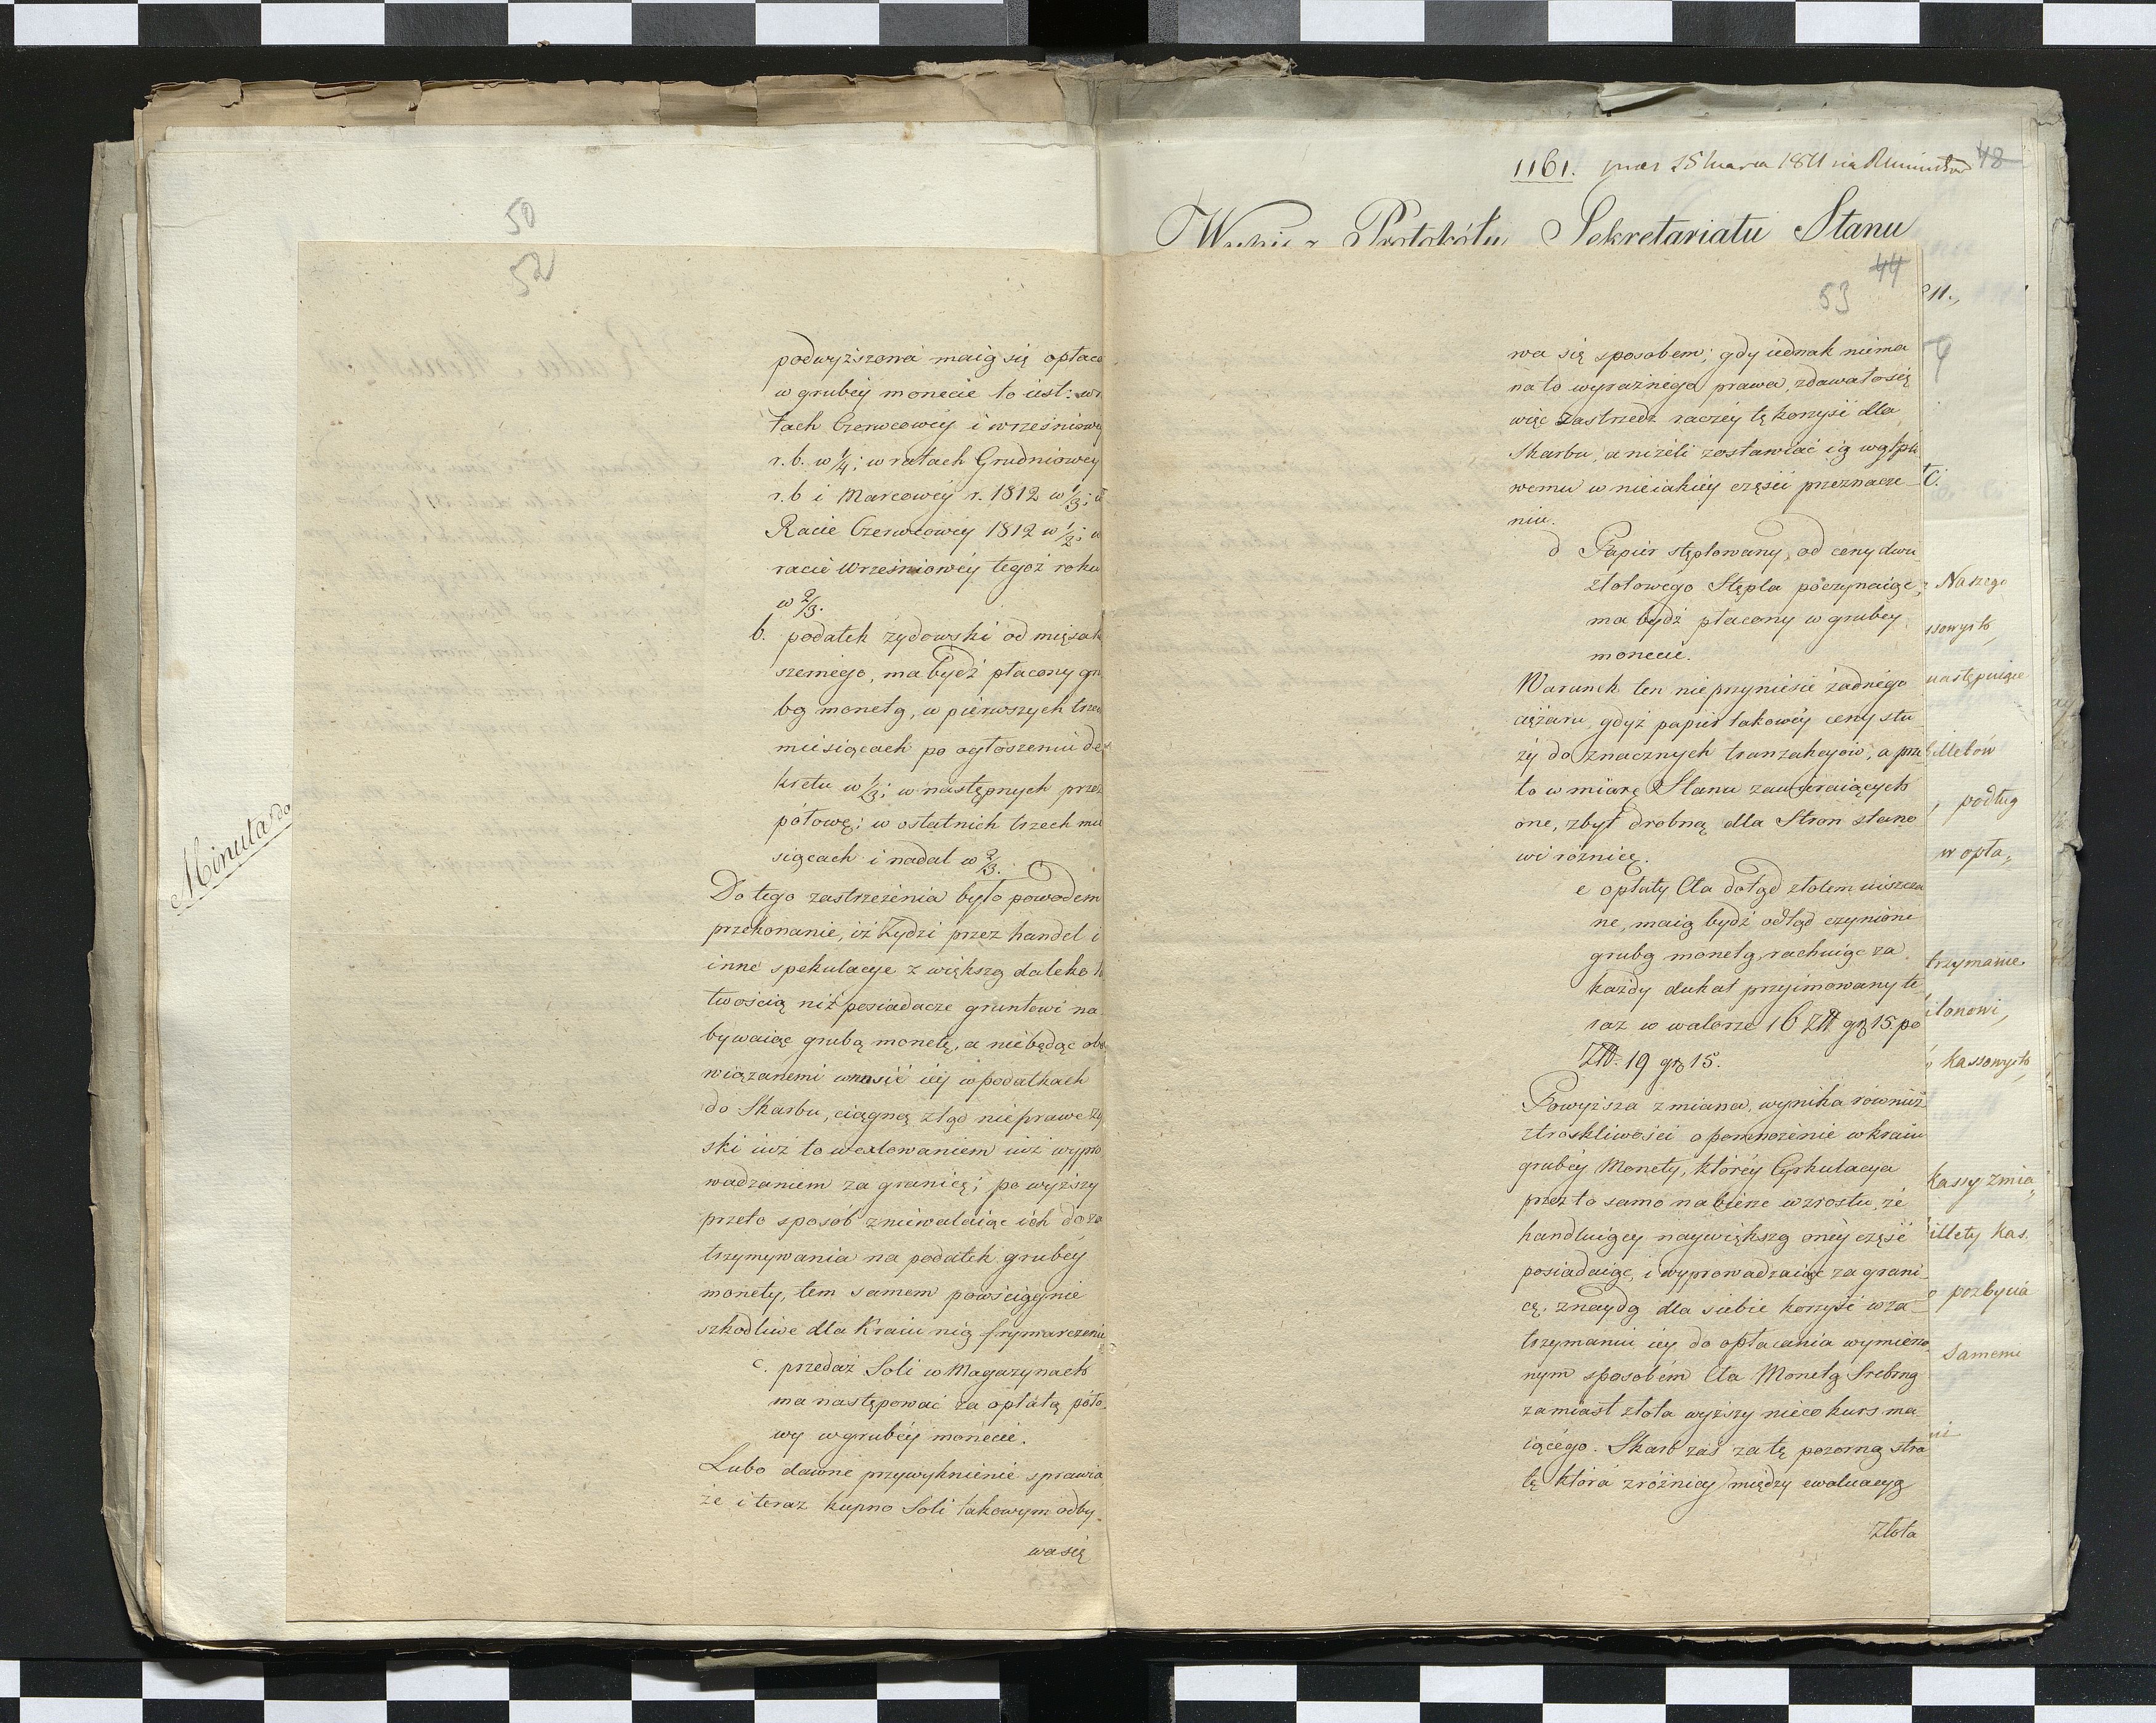 50
52
podwyższona maią się opłaca
w grubéy monecie to iest: w r
tach Czerwcowéy i wrześniowe
r. b. w 1/4; w ratach Grudniowey
r. b i Marcowéy r. 1812 w 1/3; w
Racie Czerwcowéy 1812 w 1/2; w
racie Wrześniowéy tegoż roku
w 2/3.
b. podatek żydowski od mięsa k
szernego, ma bydź płacony gru
bą monetą, w pierwszych trzec
miesiącach po ogłoszeniu de
kretu w 1/3; w następnych przez
połowę; w ostatnich trzech mie
siącach i nadal w 2/3.
Do tego zastrzeżenia było powodem
przekonanie, iż Żydzi przez handel i
inne spekulacye z większą daleko ła
twością niż posiadacze gruntowi na
bywaiąc grubą monetę, a niebędąc obo
wiązanemi wnosić iéy w podatkach
do Skarbu, ciągną ztąd nieprawe zy
ski iuż to wexlowaniem iuż wypro
wadzaniem za granicę; powyższy
przeto sposób zniewalaiąc ich do za
trzymywania na podatek grubey
monety, tem samem powściągnie
szkodliwe dla Kraiu nią frymarczenie
c. przedaż Soli w Magazynach
ma następować za opłatą poło,
wy w grubéy monecie.
Lubo dawne przywyknienie sprawia
że i teraz kupno Soli takowym odby,
wa się
Minuta do
1161. 1811
48
Wypis z Protokółu Sekretariatu Stanu
44
53
wa się sposobem; gdy iednak niema
na to wyraźnego prawa, zdawało się
więc zastrzedz raczéy tę korzyść dla
Skarbu, aniżeli zostawiać ią wątpli
wemu w nieiakiéy części przeznacze
niu.
d Papier stęplowany, od ceny dwu
złotowego Stępla poczynaiąc,
ma bydź płacony w grubey
monecie.
Warunek ten nieprzyniesie żadnego
ciężaru, gdyż papier takowéy ceny słu
ży do znacznych tranzakcyów, a prze
to w miarę Stanu zawieraiących
one, zbyt drobną dla Stron stano
wi różnicę.
e opłaty Cła dotąd złotem uiszcza
ne, maią bydź odtąd czynione
grubą monetą, rachuiąc za
każdy dukat przyimowany te
raz w walorze 16 Złł gr 15 po
Złł. 19 gr 15.
Powyższa zmiana, wynika również
z troskliwości o pomnożenie w kraiu
grubéy Monety, któréy Cyrkulacya
przez to samo nabierze wzrostu, że
handluiący naywiększą onéy część
posiadaiąc, i wyprowadzaiąc za grani
cę, znaydą dla siebie korzyść w za
trzymaniu iey do opłacania wymienio,
nym sposobém Cła Monetą Srebrną
zamiast złota wyższy nieco kurs ma
iącego. Skarb zaś za tę pozorną stra
tę która z różnicy między ewaluacyą
Złota
11.,
Naszego
ssowych
następuiące
illetów
, podług
w opła,,
trzymanie
kassowych
kassy zmia,,
illety Kas.
pozbycia
samemu